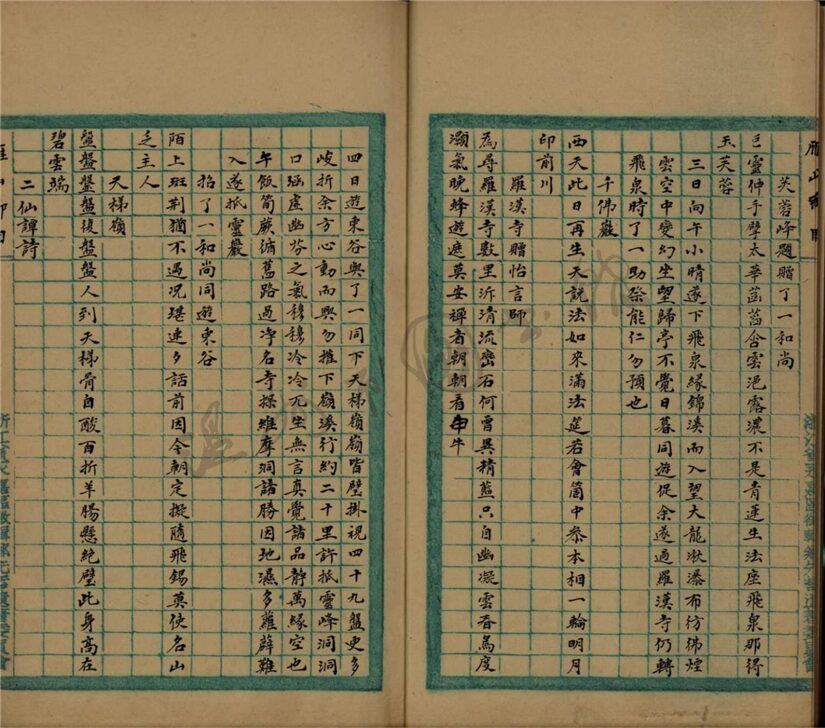 芙蓉峰題贈了一和尚
巨靈伸手擘太華菡萏含雲浥露濃不是青蓮生法座飛泉那得
玉芙蓉
三日向午小晴遂下飛泉緣錦溪而入望大龍湫瀑布彷彿煙
雲空中變幻坐望歸亭不覺日暮同遊促余遂過羅漢寺仍轉
飛泉時了一助祭能仁勿預也
千佛巖
西天此日再生天說法如來滿法筵若會箇中參本相一輪明月
印前川
羅漢寺贈怡言師
為尋羅漢寺數里泝清流巒石何曾異精藍只自幽凝雲春鳥度
灝氣晚蜂遊遮莫安禪者朝朝看牛
四日遊東谷與了一同下天梯嶺嶺皆壁掛視四十九盤更多
岐折余方心動而輿勿摧下嶺溪行約二十里許抵靈峰洞洞
口涵虛幽芬之氣穆穆冷冷兀坐無言真覺諸品靜萬緣空也
午飯筍蕨循舊路過淨名寺探維摩洞諸勝因地濕多蘿薜難
入遂抵靈巖
招了一和尚同遊東谷
陌上班荊猶不遇況堪連夕話前因今朝定擬隨飛錫莫使名山
乏主人
天梯嶺
盤盤盤盤後盤盤人到天梯骨自酸百折羊腸懸絶壁此身高在
碧雲端
二仙譚詩